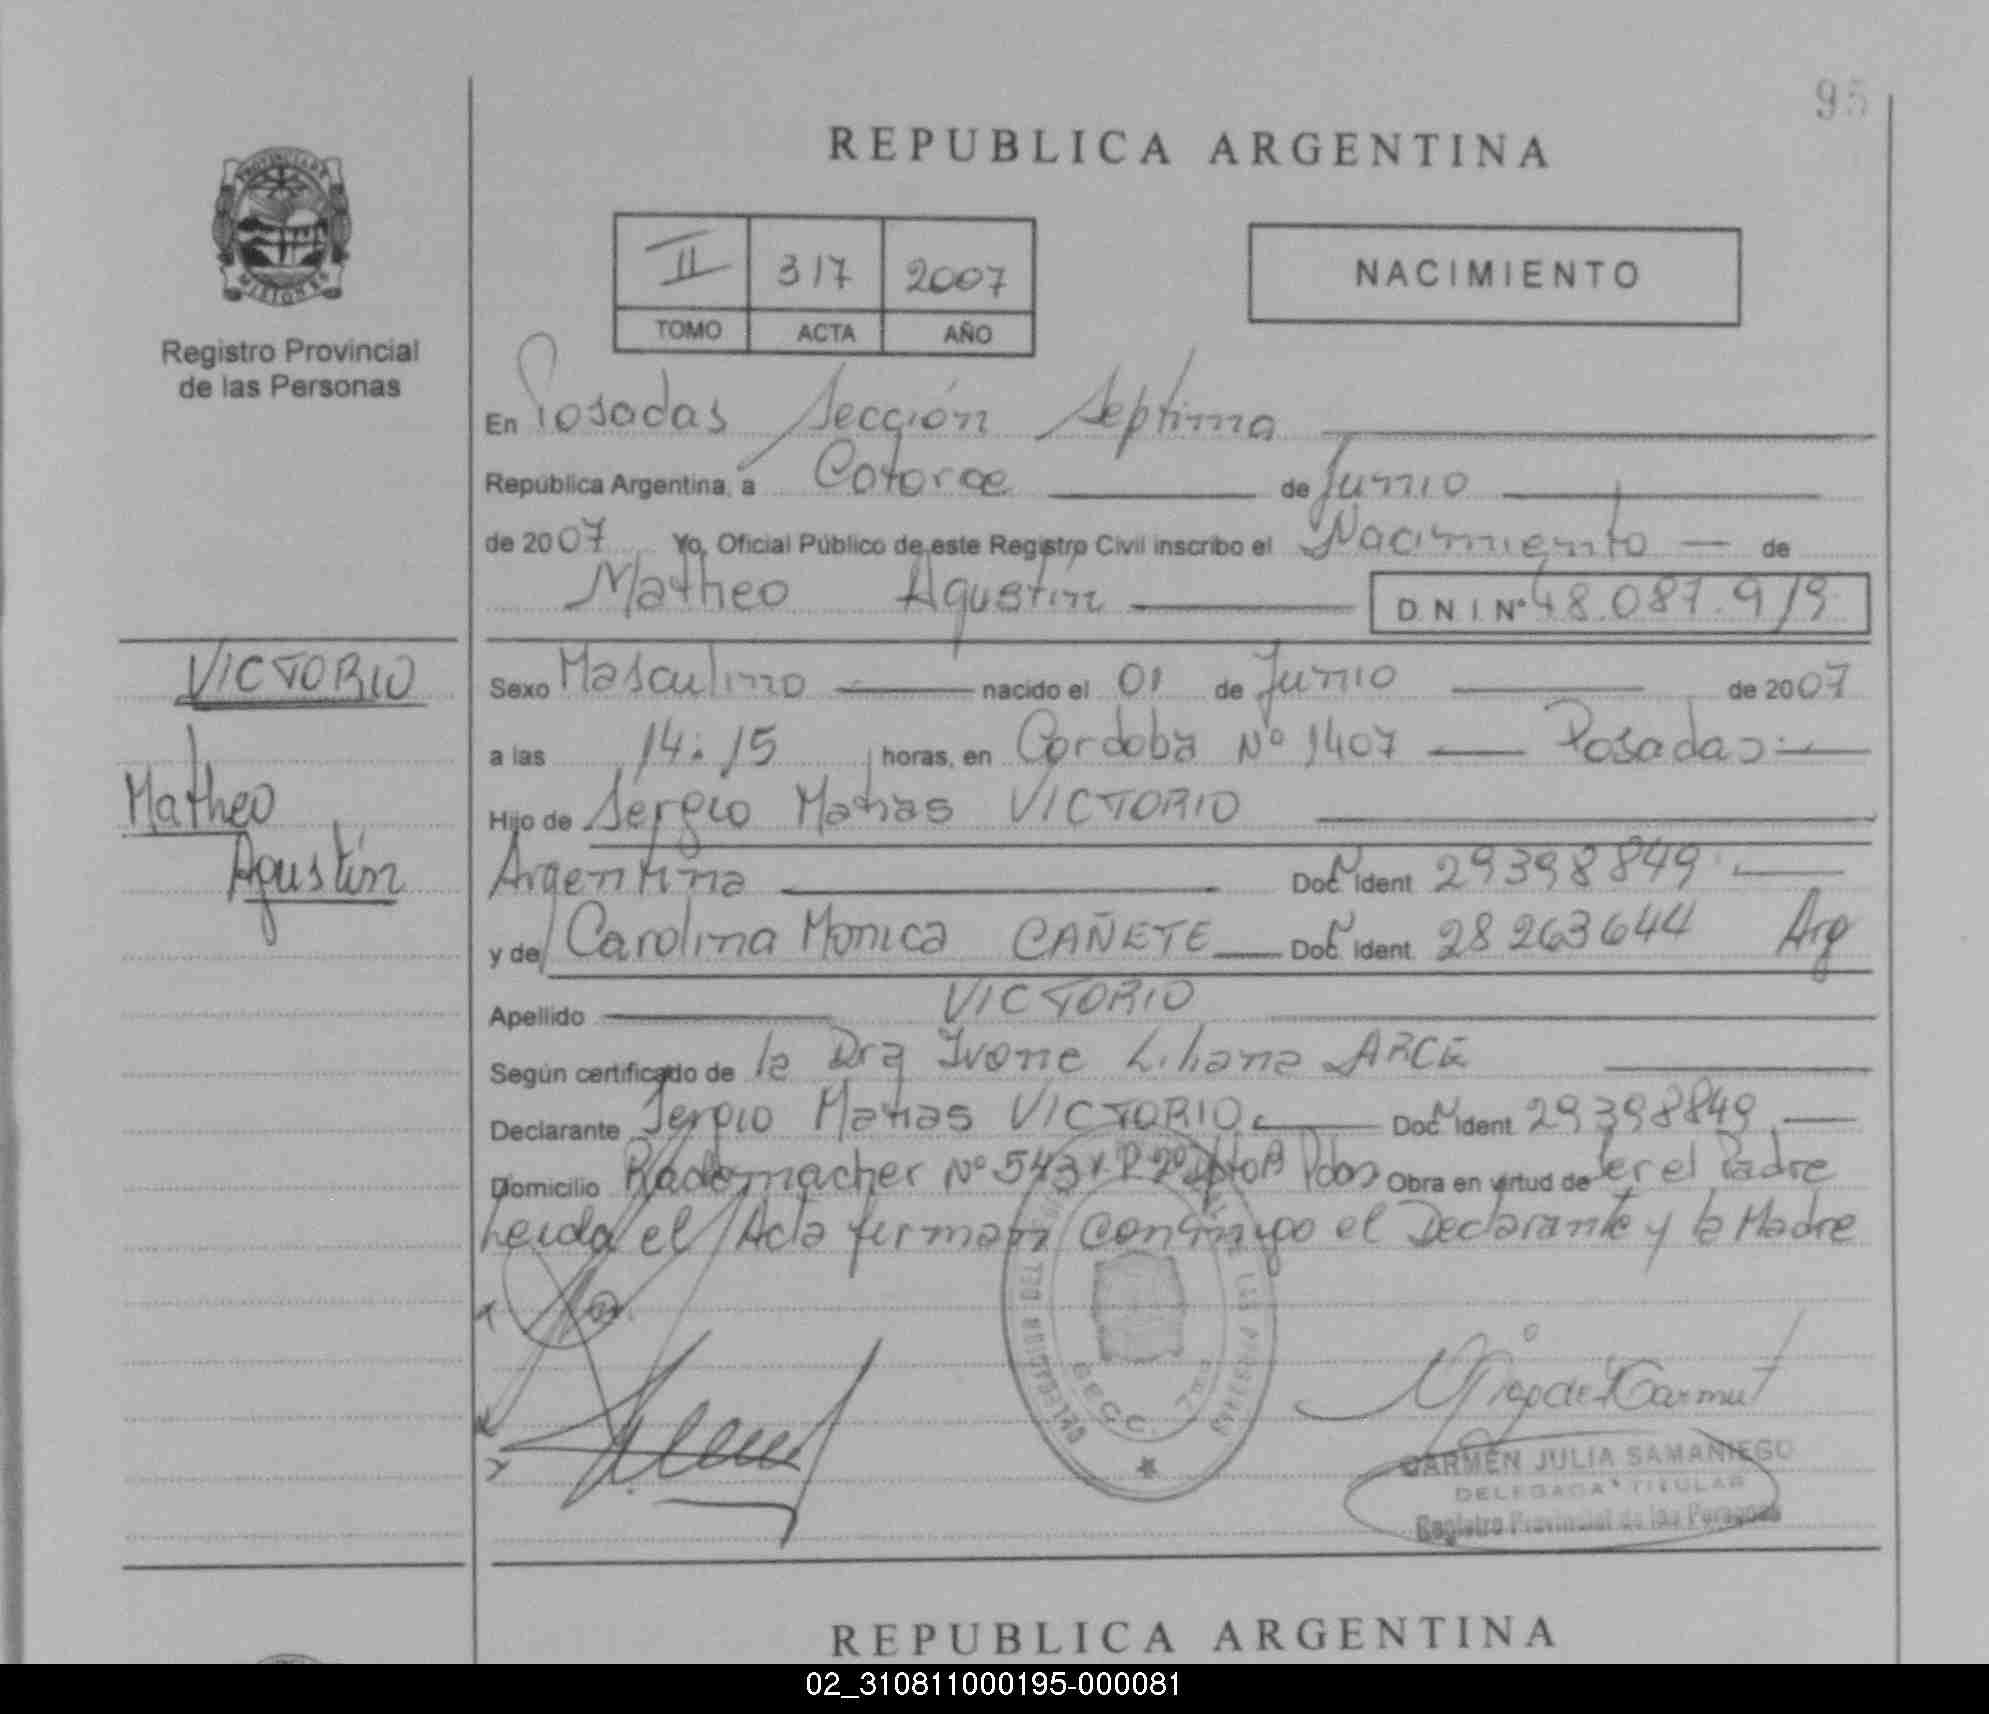 95
REPUBLICA ARGENTINA
PROVINCIA DE
MISIONES
Registro Provincial
de las Personas
II 317 2007
TOMO ACTA AÑO
NACIMIENTO
En Posadas Sección Septima
República Argentina, a Catorce de Junio
de 2007 Yo, Oficial Público de este Registro Civil inscribo el Nacimiento de
Matheo Agustin D.N.I. Nº 48.087.919
VICTORIO
Matheo
Agustín
Sexo Masculino nacido el 01 de Junio de 2007
a las 14:15 horas, en Cordoba Nº 1407 Posadas
Hijo de Sergio Matias VICTORIO
Argentina Doc Ident 29398849
y de Carolina Monica CAÑETE Doc Ident. 28263644 Arg
Apellido VICTORIO
Según certificado de la Dra Ivone Liliana ARCE
Declarante Sergio Matias VICTORIO Doc Ident 29398849
Domicilio Rademacher Nº 543 P 2º Dpto Pdas Obra en virtud de Ser el Padre
Leida el Acta firman conmigo el Declarante y la Madre
SECC. 7ma
CARMEN JULIA SAMANIEGO
DELEGADA TITULAR
Registro Provincial de las Personas
REPUBLICA ARGENTINA
02_310811000195-000081